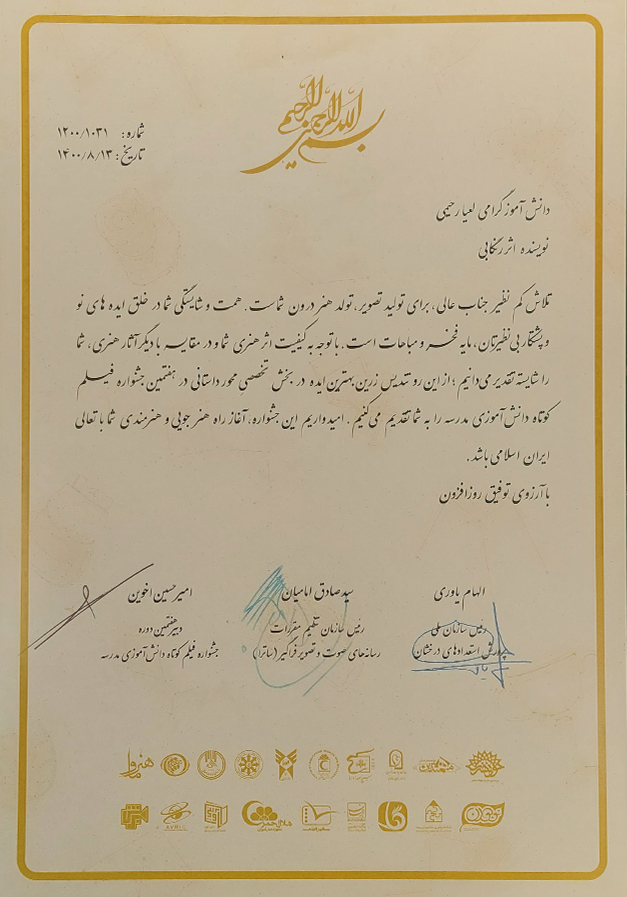 بسم الله الرحمن الرحیم
شماره: ۱۲۰۰/۱۰۳۱
تاریخ: ۱۴۰۰/۸/۱۳
دانش آموز گرامی لعیا رحیمی
نویسنده اثر
تلاش کم نظیر جناب عالی، برای تولید تصویر، تولد هنر درون شماست. همت و شایستگی شما در خلق ایده های نو
و پشتکار بی نظیرتان، مایه فخر و مباهات است. با توجه به کیفیت اثر هنری شما و در مقایسه با دیگر آثار هنری، شما
را شایسته تقدیر می‌دانیم؛ از این رو تندیس زرین بهترین ایده در بخش تخصصی محور داستانی در هفتمین جشنواره فیلم
کوتاه دانش‌آموزی مدرسه را به شما تقدیم می‌کنیم. امیدواریم این جشنواره، آغاز راه هنرجویی و هنرمندی شما با تعالی
ایران اسلامی باشد.
با آرزوی توفیق روزافزون
الهام یاوری
رئیس سازمان ملی
پرورش استعدادهای درخشان
سید صادق امامیان
رئیس سازمان تنظیم مقررات
رسانه‌های صوت و تصویر فراگیر (ساترا)
امیرحسین اخوین
دبیر هفتمین دوره
جشنواره فیلم کوتاه دانش‌آموزی مدرسه